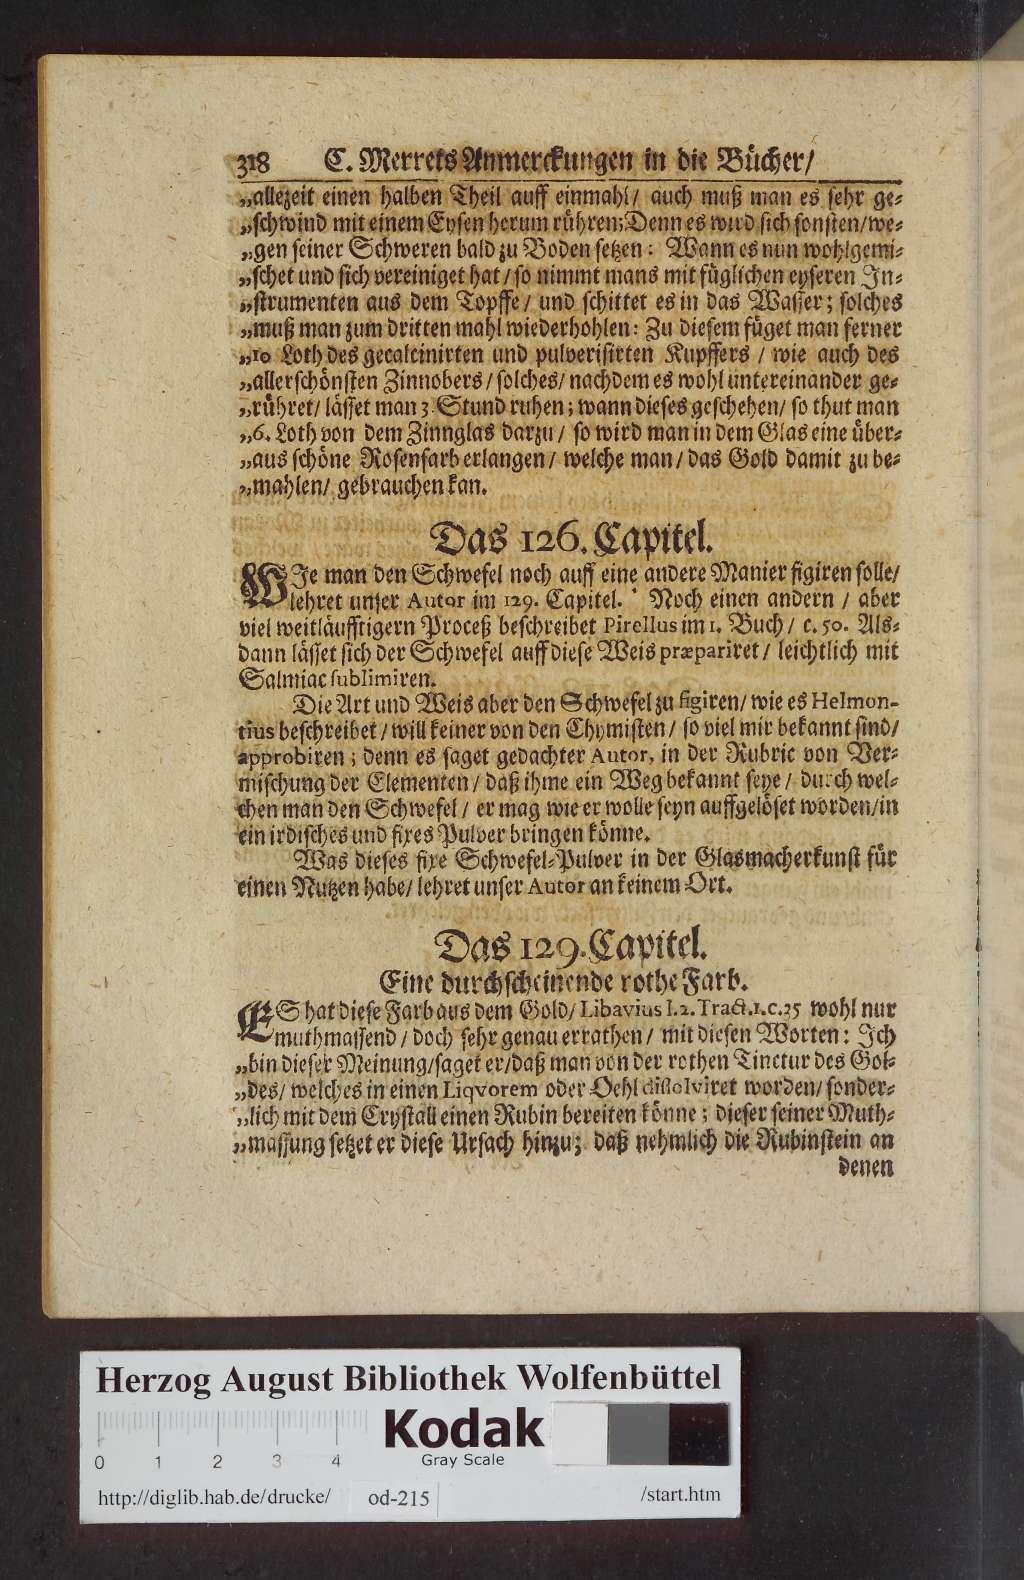 318 C. Merrets Anmerckungen in die Bücher/
„allezeit einen halben Theil auff einmahl/ auch muß man es sehr ge-
„schwind mit einem Eysen herum rühren: Denn es wird sich sonsten/we-
„gen seiner Schweren bald zu Boden setzen: Wann es nun wohlgemi-
„schet und sich vereiniget hat/ so nimmt mans mit füglichen eyseren In-
„strumenten aus dem Topffe/ und schittet es in das Wasser; solches
„muß man zum dritten mahl wiederhohlen: Zu diesem füget man ferner
„10 Loth des gecalcinirten und pulverisirten Kupffers / wie auch des
„allerschönsten Zinnobers/ solches/ nachdem es wohl untereinander ge-
„rühret/ lässet man 3. Stund ruhen; wann dieses geschehen/ so thut man
„6. Loth von dem Zinnglas darzu/ so wird man in dem Glas eine über-
„aus schöne Rosenfarb erlangen/ welche man/ das Gold damit zu be-
„mahlen/ gebrauchen kan.
Das 126. Capitel.
WIe man den Schwefel noch auff eine andere Manier figiren solle/
lehret unser Autor im 129. Capitel. Noch einen andern / aber
viel weitläufftigern Proceß beschreibet Pirellus im 1. Buch/ c. 50. Als-
dann lässet sich der Schwefel auff diese Weis præpariret/ leichtlich mit
Salmiac sublimiren.
Die Art und Weis aber den Schwefel zu figiren/ wie es Helmon-
tius beschreibet/ will keiner von den Chymisten/ so viel mir bekannt sind/
approbiren; denn es saget gedachter Autor, in der Rubric von Ver-
mischung der Elementen/ daß ihme ein Weg bekannt seye/ durch wel-
chen man den Schwefel/ er mag wie er wolle seyn auffgelöset worden/in
ein irdisches und fixes Pulver bringen könne.
Was dieses fixe Schwefel-Pulver in der Glasmacherkunst für
einen Nutzen habe/ lehret unser Autor an keinem Ort.
Das 129. Capitel.
Eine durchscheinende rothe Farb.
ES hat diese Farb aus dem Gold/ Libavius l. 2. Tract. 1. c. 35 wohl nur
muthmassend/ doch sehr genau errathen/ mit diesen Worten: Ich
„bin dieser Meinung/saget er/daß man von der rothen Tinctur des Gol-
„des/ welches in einen Liqvorem oder Oehl dissolviret worden/ sonder-
„lich mit dem Crystall einen Rubin bereiten könne; dieser seiner Muth-
„massung setzet er diese Ursach hinzu; daß nehmlich die Rubinstein an
denen
Herzog August Bibliothek Wolfenbüttel
Kodak
Gray Scale
0 1 2 3 4
http://diglib.hab.de/drucke/ od-215 /start.htm